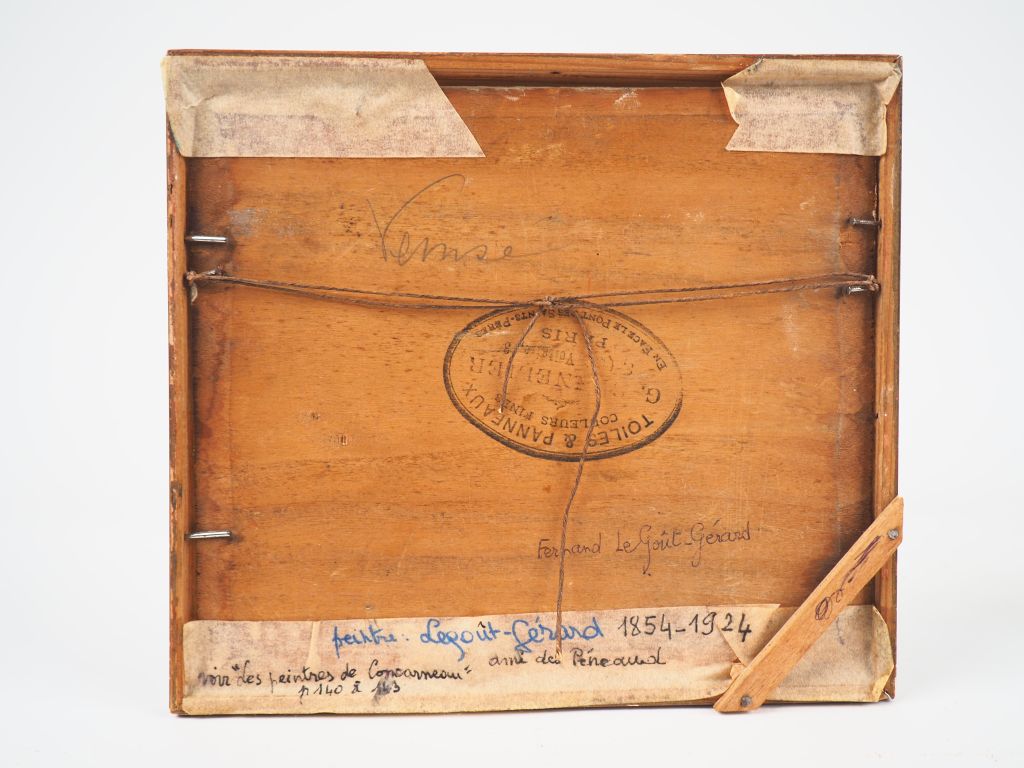 Venise
EN FACE LE PONT DES SAINTS-PÈRES
PARIS
G.
COULEURS FINES
TOILES & PANNEAUX
Fernand Le Goût-Gérard
peintre: Legoût-Gérard 1854-1924
ami de Péneaud
voir "les peintres de Concarneau"
p 140 à 143